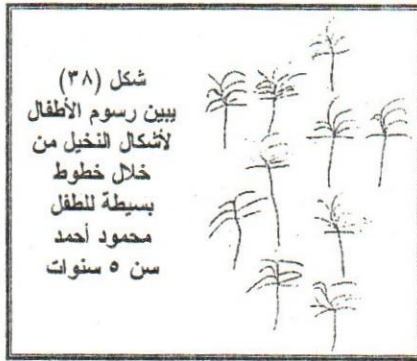 شكل (٣٨)
يبين رسوم الأطفال
لأشكال النخيل من
خلال خطوط
بسيطة للطفل
محمود أحمد
سن ٥ سنوات